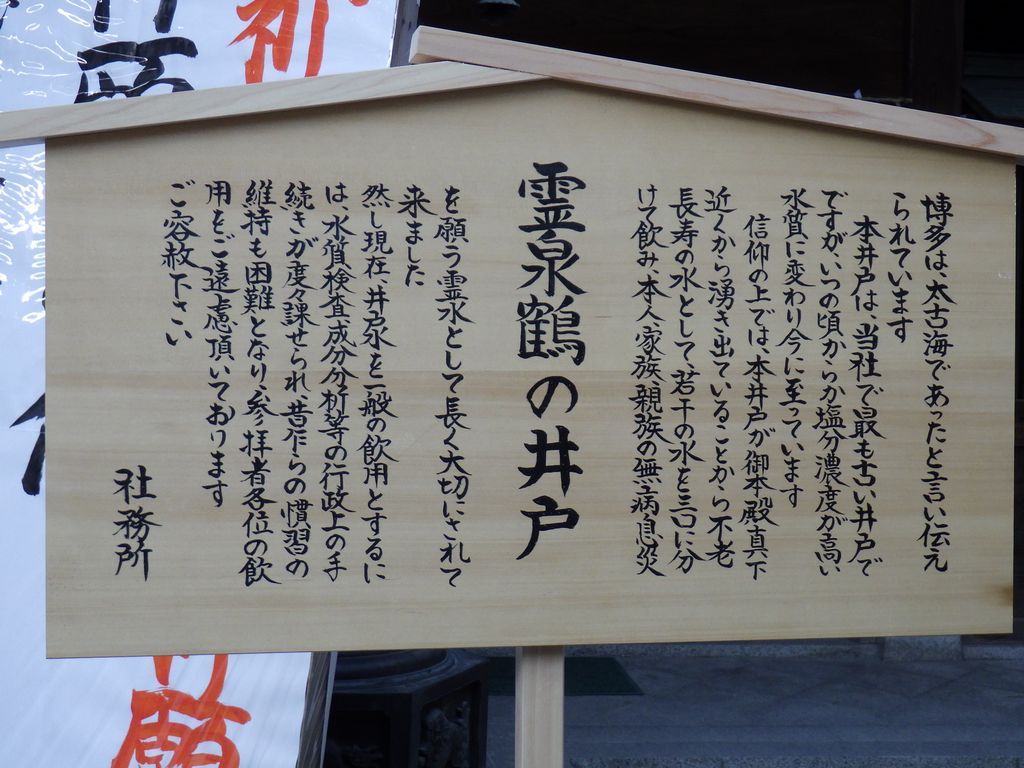 博多は、太古海であったと言い伝え
られています
本井戸は、当社で最も古い井戸で
ですが、いつの頃からか塩分濃度が高い
水質に変わり今に至っています
信仰の上では本井戸が御本殿真下
近くから湧き出ていることから不老
長寿の水として、若干の水を三口に分
けて飲み、本人家族親族の無病息災
霊泉鶴の井戸
を願う霊水として長く大切にされて
来ました
然し現在、井戸水を一般の飲用とするに
は、水質検査成分分析等の行政上の手
続きが度々課せられ、昔乍らの慣習の
維持も困難となり、参拝者各位の飲
用をご遠慮頂いております
ご容赦下さい
社務所
祈
祈願
願